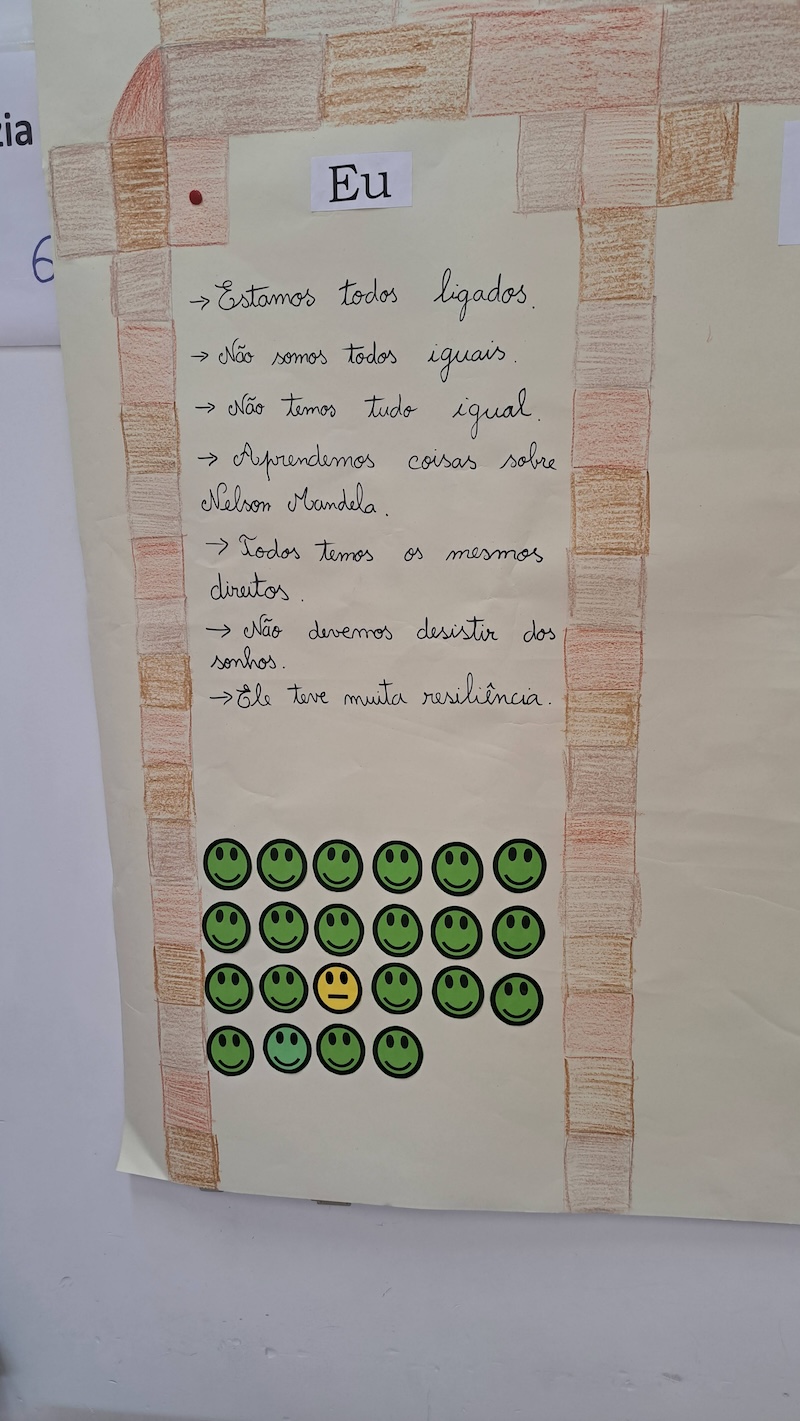 zia
6
Eu
→ Estamos todos ligados.
→ Não somos todos iguais.
→ Não temos tudo igual.
→ Aprendemos coisas sobre
Nelson Mandela.
→ Todos temos os mesmos
direitos.
→ Não devemos desistir dos
sonhos.
→ Ele teve muita resiliência.